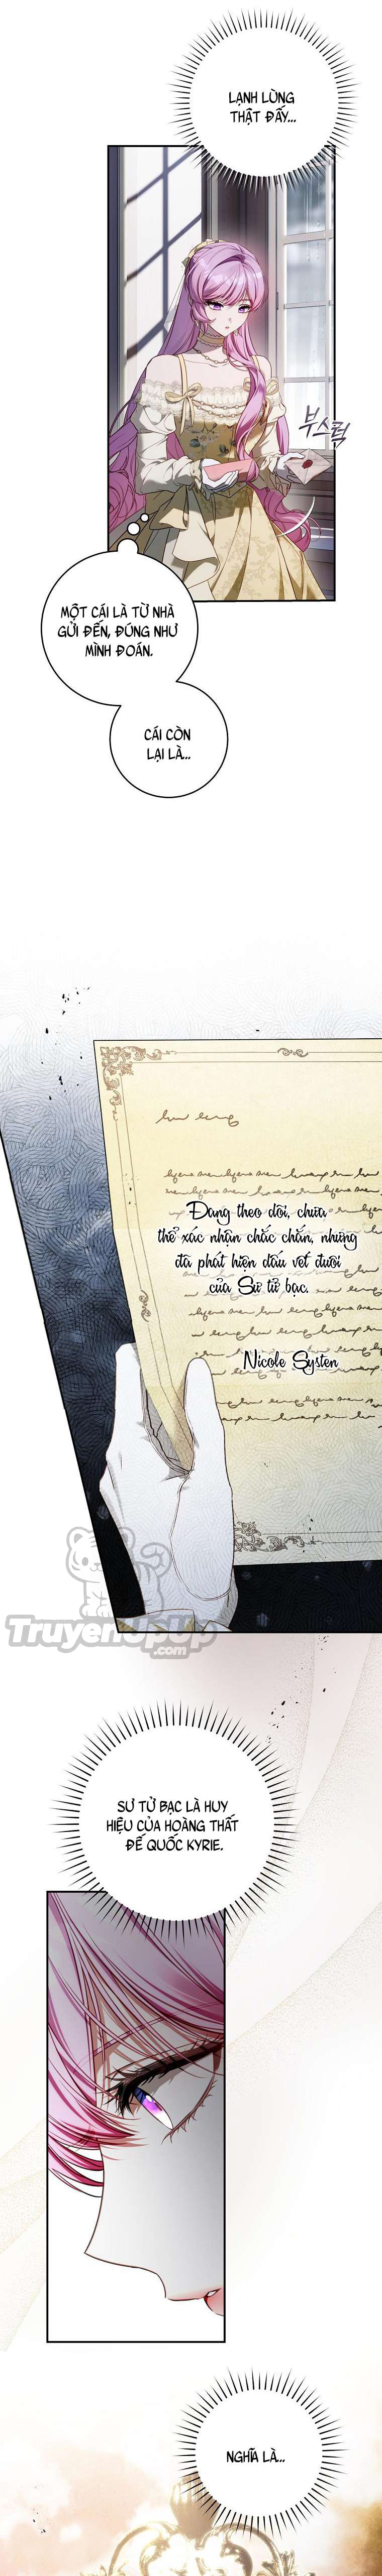 LẠNH LÙNG
THẬT ĐẤY...
부스럭
MỘT CÁI LÀ TỪ NHÀ
GỬI ĐẾN, ĐÚNG NHƯ
MÌNH ĐOÁN.
CÁI CÒN
LẠI LÀ...
Đang theo dõi, chưa
thể xác nhận chắc chắn, nhưng
đã phát hiện dấu vết đuôi
của Sư tử bạc.
Nicole Systen
TruyenTopUp
.com
SƯ TỬ BẠC LÀ HUY
HIỆU CỦA HOÀNG THẤT
ĐẾ QUỐC KYRIE.
NGHĨA LÀ...